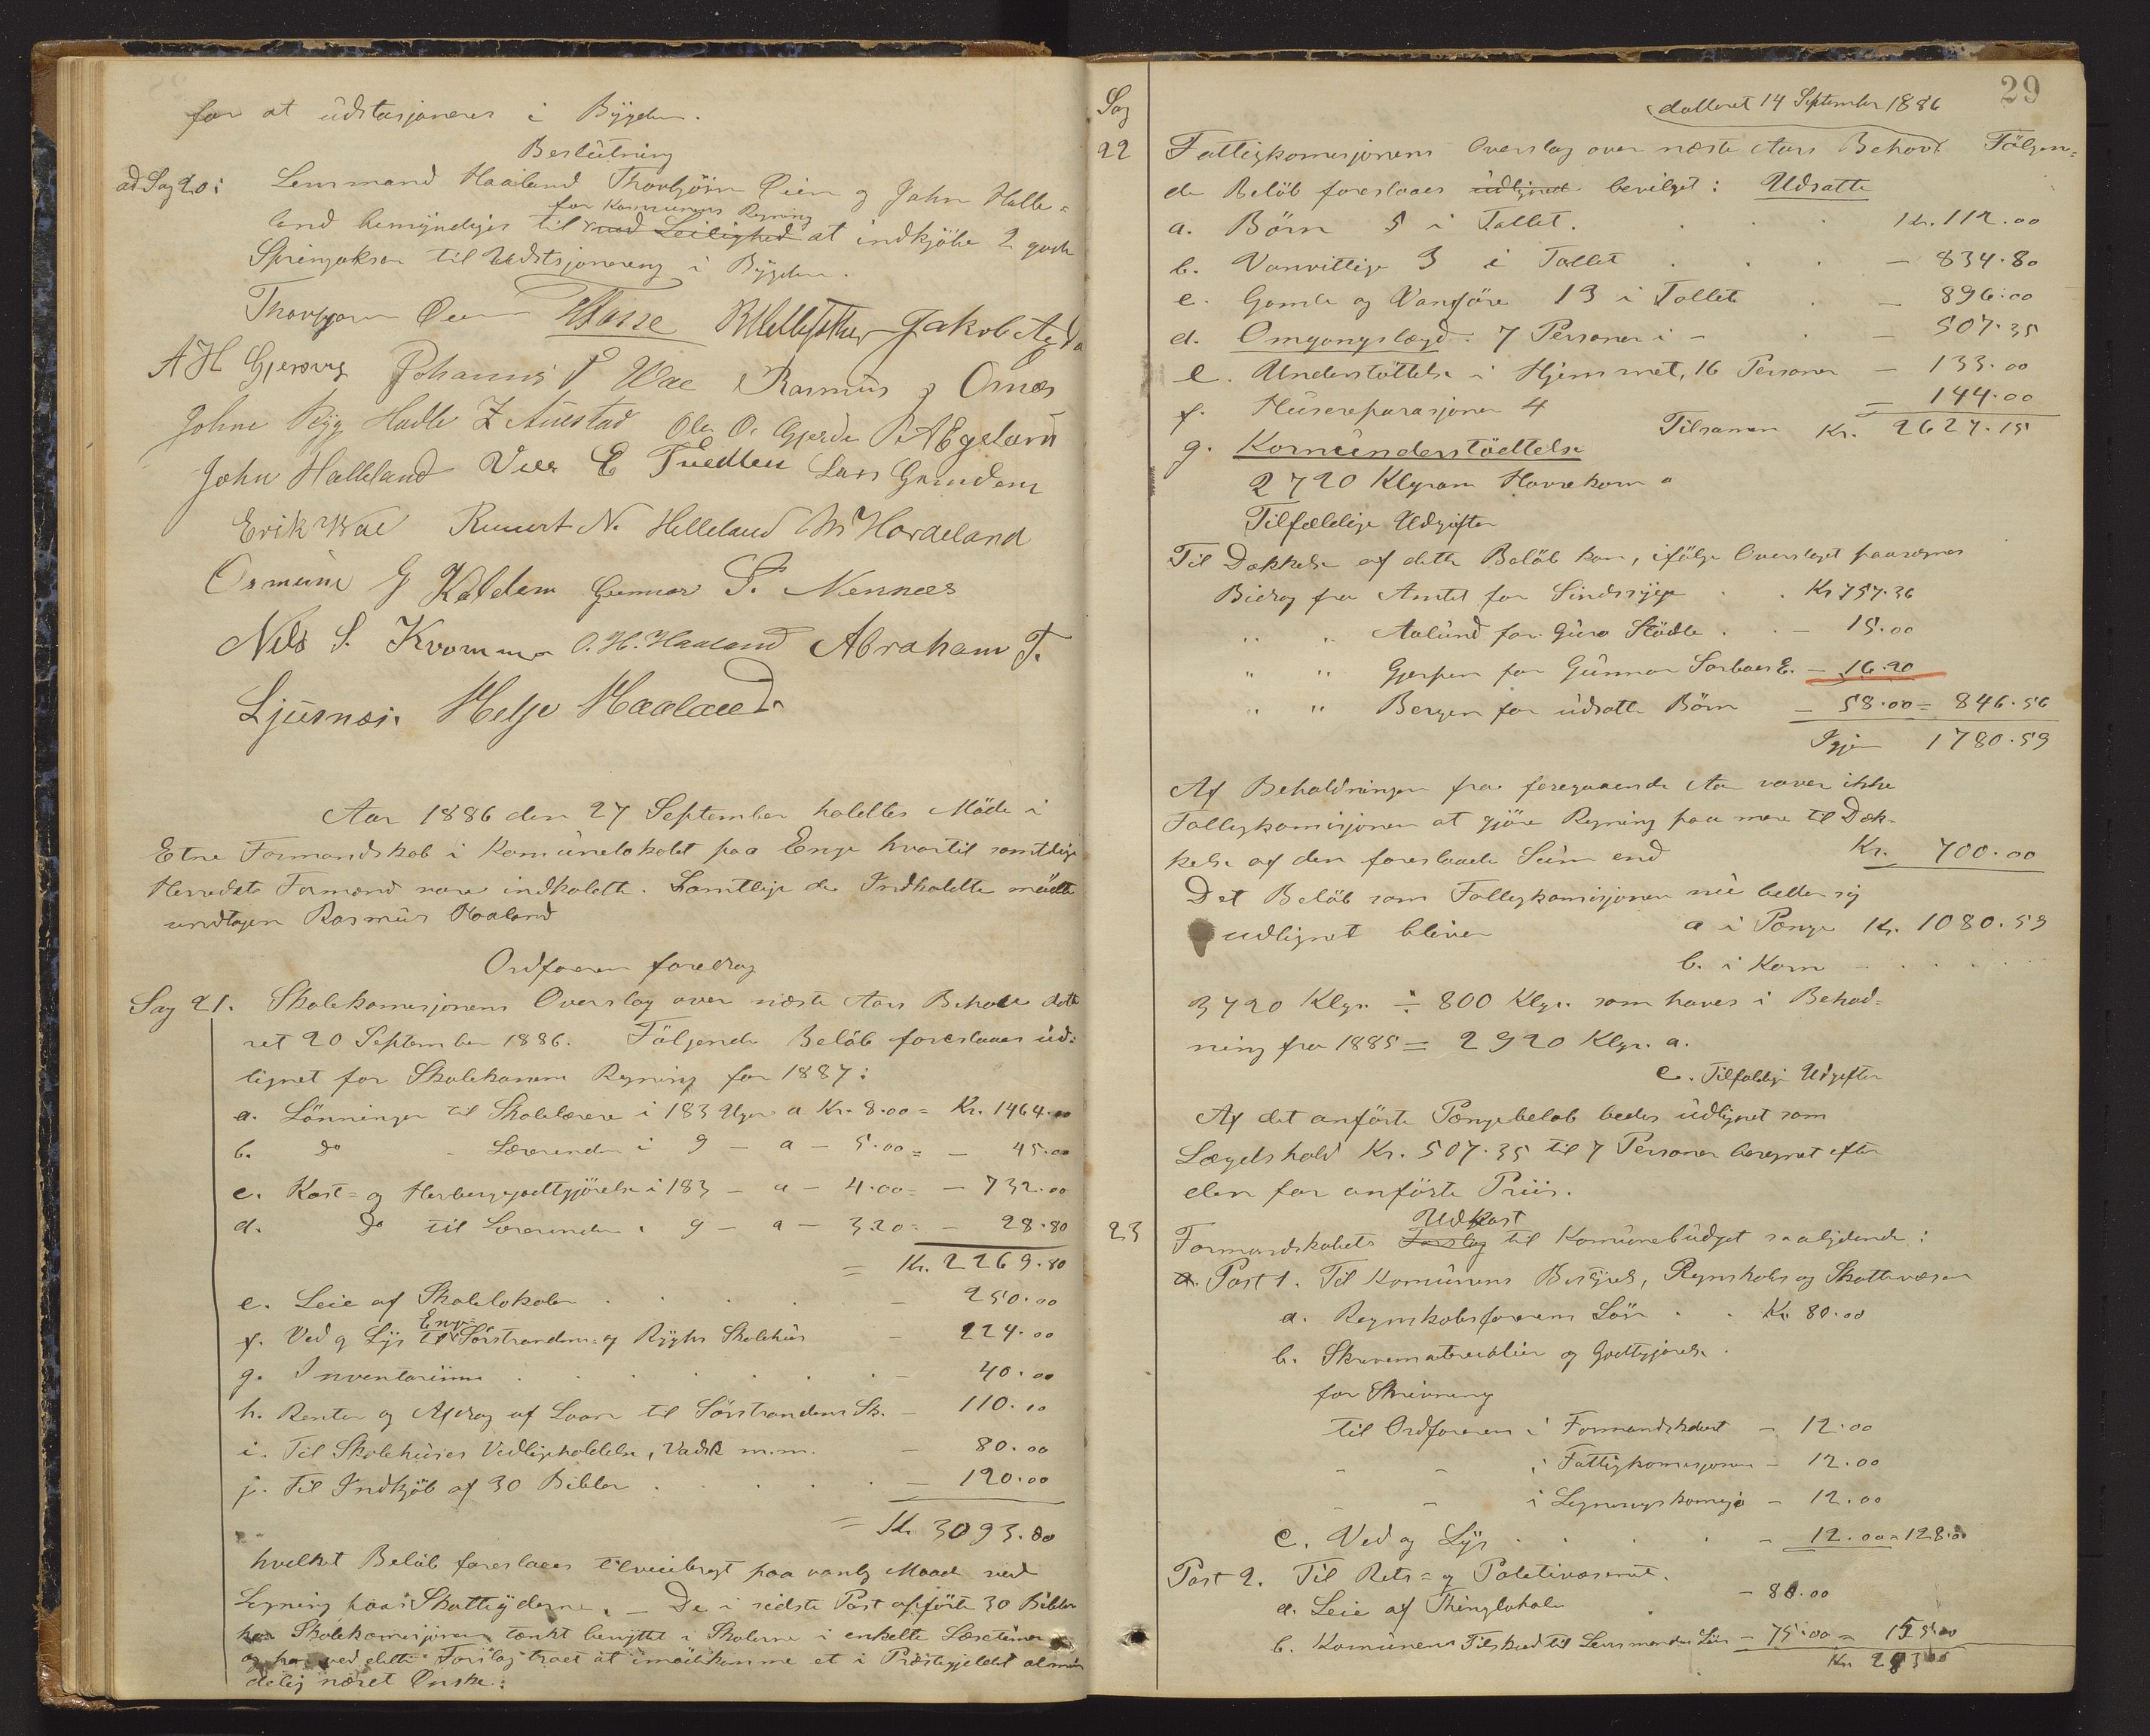 for at udstasjoneres i Bygden.
Beslutning
ad Sag 20: Lensmand Haaland Thorbjörn Øien og John Halle=
land bemyndiges til for Kommunens Regning med Leilighed at indkjöbe 2 gode
Springokser til Udstsjonering i Bygden.
Thorbjørn Øien Jakob
A H Gjersvig Johannes P Wae Rasmus J Omes
Johne Rygg Halle Z Auestad Ole O. Gjerde P A Egeland
John Halleland E Tvedten Lars Grindem
Erik Wae N. Helleland M Hordeland
Osmund G Kaldem Gunnar T. Nernæs
Nils S. Kvamme O. H. Haaland Abraham T.
Ljusnæs. Helje Haaland.
Aar 1886 den 27 September holdtes Möde i
Etne Formandskab i Komunelokalet paa Enge hvortil samtlige
Herredets Formænd vare indkaldte. Samtlige de Indkaldte mödte
undtagen Rasmus Haaland
Ordföreren foredrog
Sag 21. Skolekomisjonens Overslag over næste Aars Behov datte
ret 20 September 1886. Fölgende Belöb foreslaaes ud=
lignet for Skolekassens Regning for 1887:
a. Lönninger til Skolelærere i 183 Uger a Kr. 8.00 = Kr. 1464.00
b. do - Lærerinder i 9 - a - 5.00 = - 45.00
c. Kost= og Herbergegodtgjörelse i 183 - a - 4.00 = - 732.00
d. Do til Lærerinder i 9 - a - 3.20 = - 28.80
= Kr. 2269.80
e. Leie af Skolelokaler - 250.00
f. Ved og Lys til Enge= Sörstrandens= og Ryghs Skolehus - 224.00
g. Inventarium - 40.00
h. Renter og Afdrag af Laan til Sörstrandens Sk. - 110.00
i. Til Skolehuses Vedligeholdelse, Vadsk m.m. - 80.00
j. Til Indkjöb af 30 Bibler - 120.00
= Kr. 3093.80
hvilket Belöb foreslaaes tilveiebragt paa vanlig Maade ved
Ligning paa Skatteyderne. - De i sidste Post opförte 30 Bibler
har Skolekomisjonen tænkt benyttet i Skolerne i enkelte Læsetimer
og har ved dette Forslag troet at imödekomme et i Præstegjeldet almin
delig næret Ønske:
29
Sag datteret 14 September 1886
22 Fattigkomisjonens Overslag over næste Aars Behov. Fölgen=
de Belöb foreslaaes udlignet bevilget: Udsatte
a. Börn 5 i Tallet. Kr. 112.00
b. Vanvittige 3 i Tallet - 834.80
c. Gamle og Vanföre 13 i Tallet - 896.00
d. Omgangslægd: 7 Personer i - - 507.35
e. Understöttelse i Hjemmet, 16 Personer - 133.00
f. Husereparasjoner 4 = 144.00
Tilsamen Kr. 2627.15
g. Kornunderstöttelse
2720 Klgram Havrekorn a
Tilfældige Udgifter
Til Dækkelse af dette Belöb kan, ifölge Overslaget paaregnes
Bidrag fra Amtet for Sindssyge Kr 757.36
" " Aalund for Guro Stödle - 15.00
" " Gjerpen for Gunnar E. - 16.20
" " Bergen for udsatte Börn - 58.00 = 846.56
Igjen 1780.59
Af Beholdningen fra foregaaende Aar vover ikke
Fattigkomisjonen at gjöre Regning paa mere til Dæk=
kelse af den foreslaaede Sum end Kr. 700.00
Det Belöb som Fattigkomisjonen nu beder sig
udlignet bliver a i Penge Kr. 1080.59
b. i Korn
3720 Klgr. ÷ 800 Klgr. som haves i Behold=
ning fra 1885 = 2920 Klgr. a.
c. Tilfældige Udgifter
Af det anförte Pengebelöb bedes udlignet som
Lægdshold Kr. 507.35 til 7 Personer beregnet efter
den for anförte Priis.
23 Formandskabets Forslag Udkast til Komunebudget saalydende:
a. Post 1. Til Komunens Bestyrels, Regnskabs og Skattevæsen
a. Regnskabsförerens Lön Kr 80.00
b. Skrivematerialier og Godtgjörelse
for Skrivning
til Ordföreren i Formandskabet - 12.00
- - i Fattigkomisjonen - 12.00
- - i Ligningskomisjo - 12.00
c. Ved og Lys - 12.00 = 128.00
Post 2. Til Rets= og Politivæsenet.
a. Leie af Thinglokale - 80.00
b. Komunens Tilskud til Lensmandens Lön - 75.00 = 155.00
Kr. 283.00